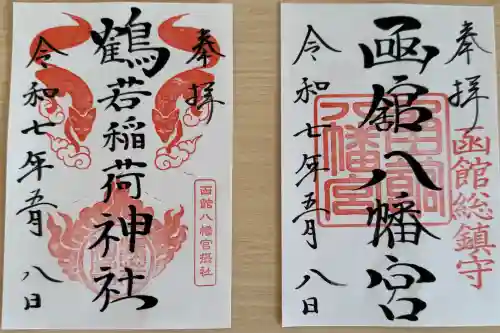 奉拝
函館総鎮守
函館八幡宮
令和七年五月八日
奉拝
函館八幡宮摂社
鶴若稲荷神社
令和七年五月八日